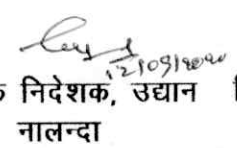 12/09/2020
क निदेशक, उद्यान
नालन्दा